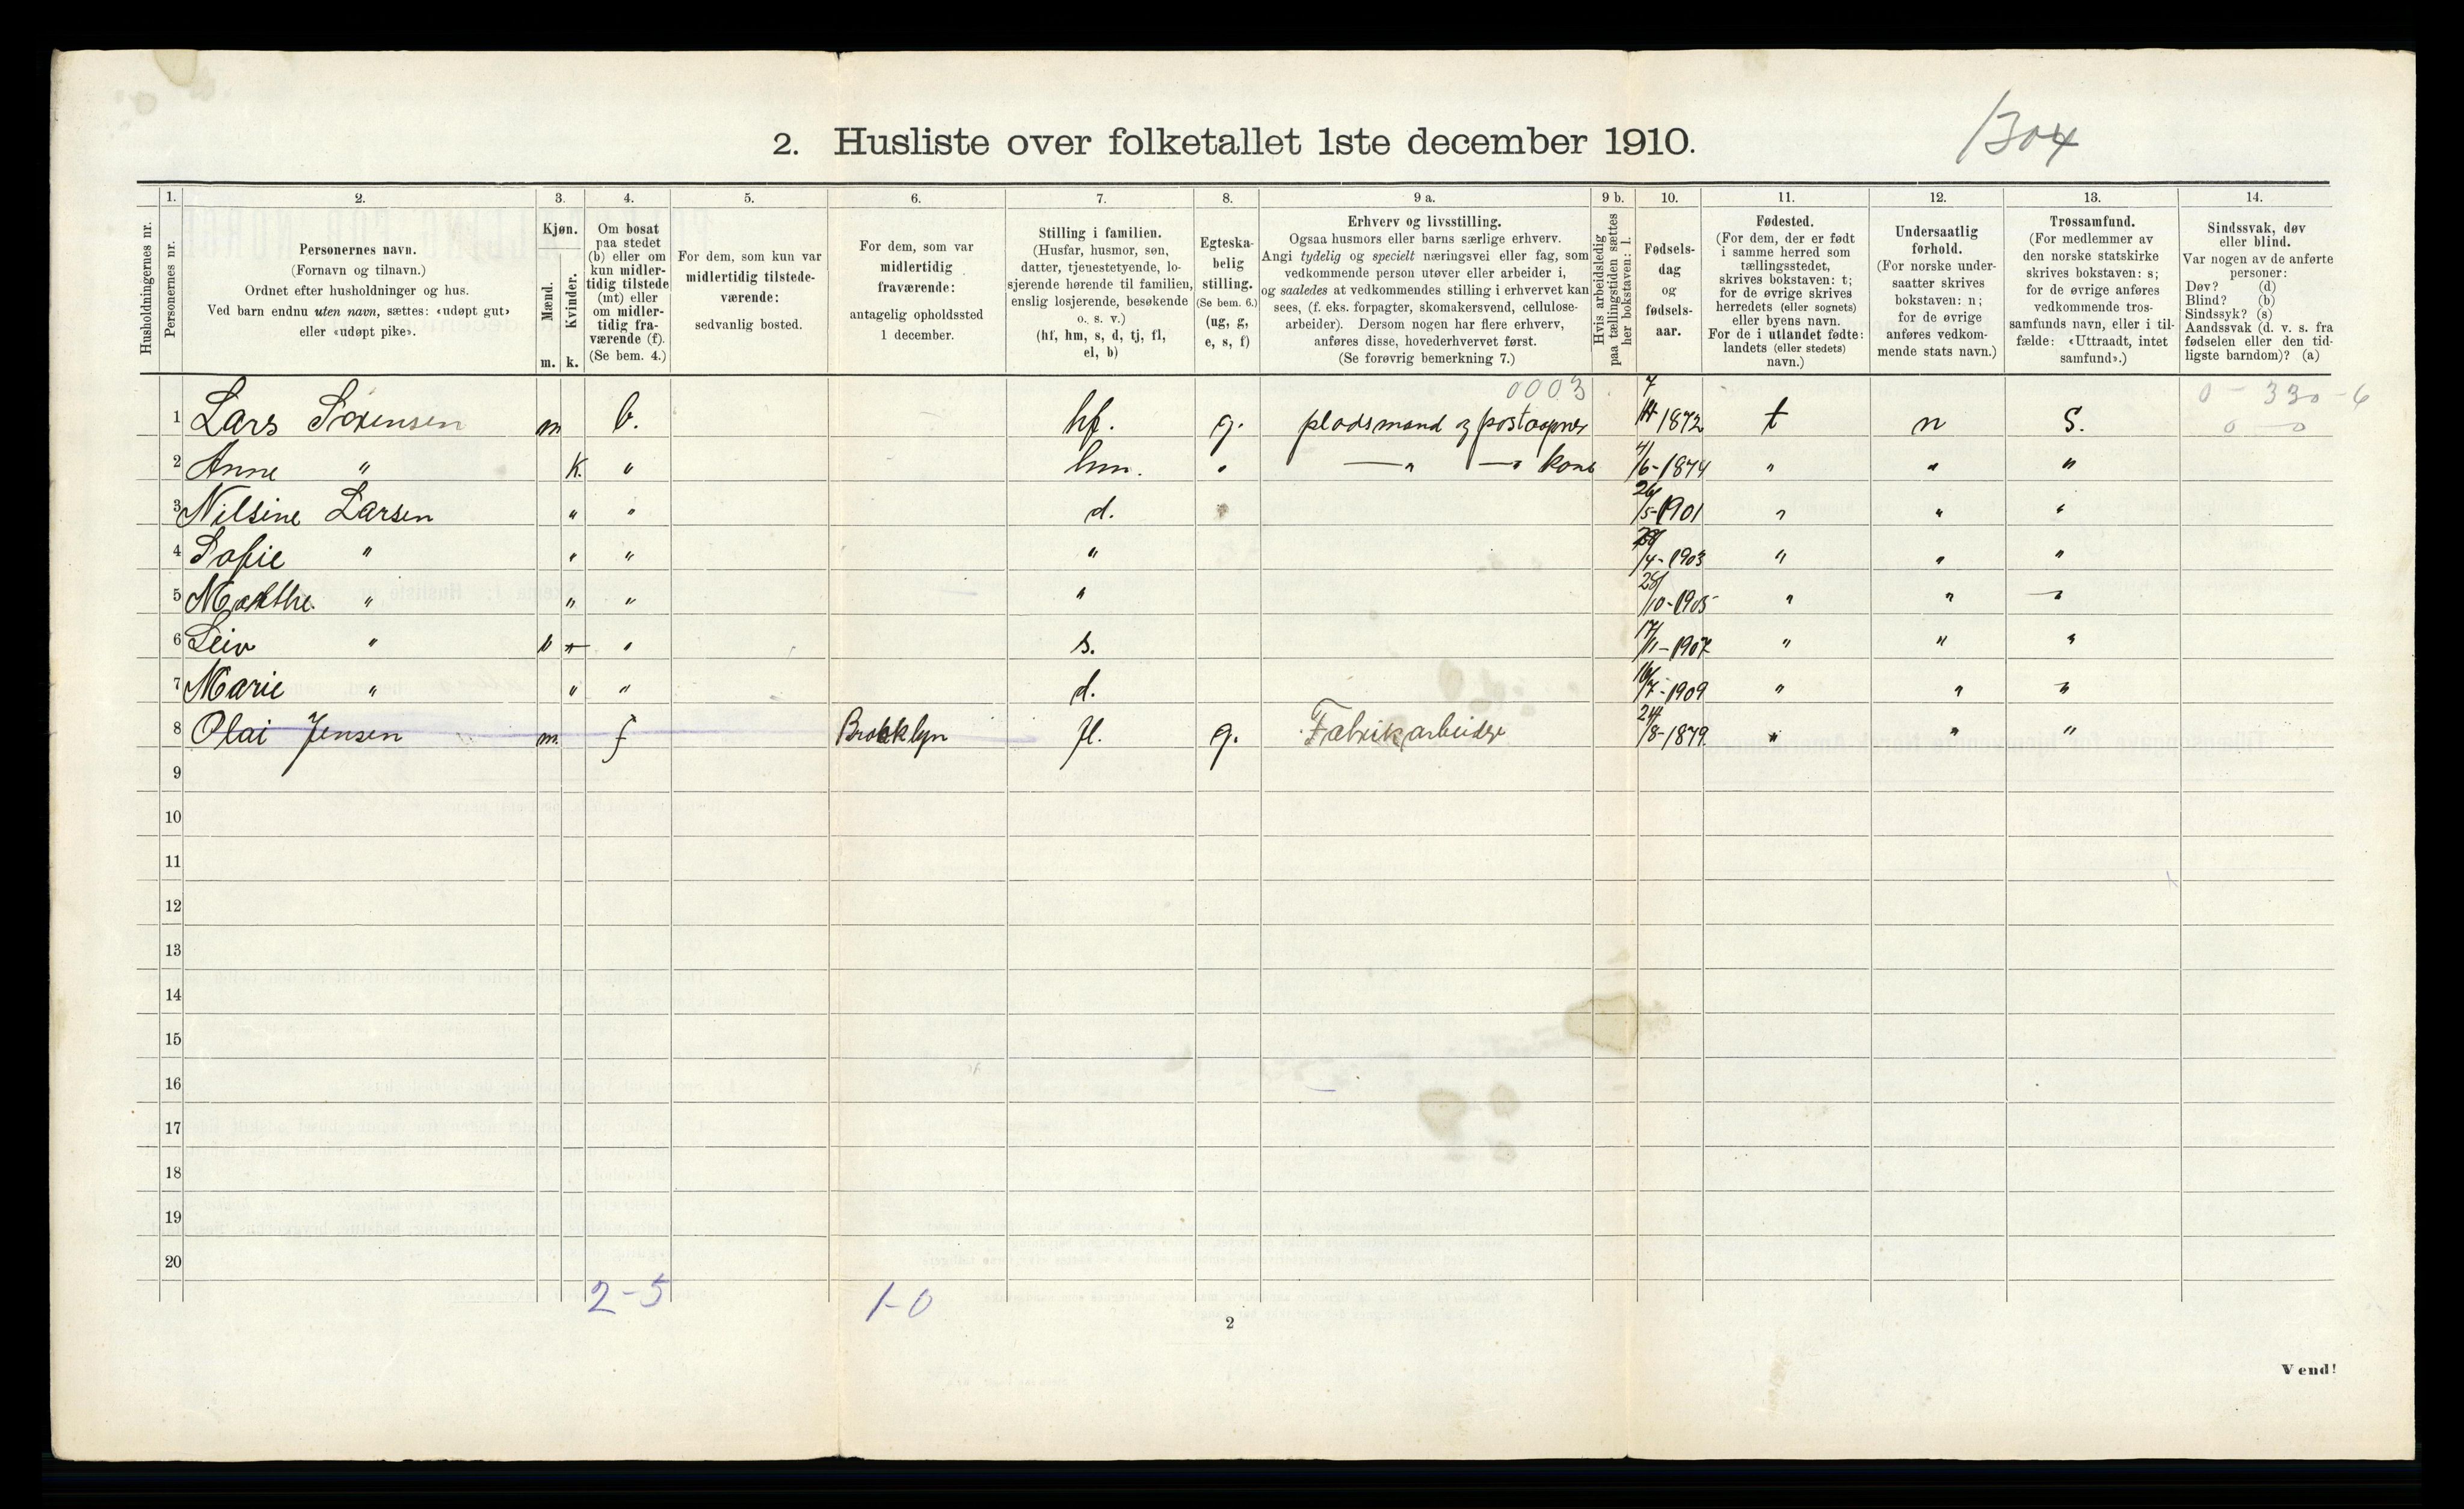 1304
2. Husliste over folketallet 1ste december 1910.
Husholdningernes nr.
1.
Personernes nr.
2.
Personernes navn.
(Fornavn og tilnavn.)
Ordnet efter husholdninger og hus.
Ved barn endnu uten navn, sættes: «udøpt gut»
eller «udøpt pike».
3.
Kjøn.
Mænd.
Kvinder.
m. k.
4.
Om bosat
paa stedet
(b) eller om
kun midler-
tidig tilstede
(mt) eller
om midler-
tidig fra-
værende (f).
(Se bem. 4.)
5.
For dem, som kun var
midlertidig tilstede-
værende:
sedvanlig bosted.
6.
For dem, som var
midlertidig
fraværende:
antagelig opholdssted
1 december.
7.
Stilling i familien.
(Husfar, husmor, søn,
datter, tjenestetyende, lo-
sjerende hørende til familien,
enslig losjerende, besøkende
o. s. v.)
(hf, hm, s, d, tj, fl,
el, b)
8.
Egteska-
belig
stilling.
(Se bem. 6.)
(ug, g,
e, s, f)
9 a.
Erhverv og livsstilling.
Ogsaa husmors eller barns særlige erhverv.
Angi tydelig og specielt næringsvei eller fag, som
vedkommende person utøver eller arbeider i,
og saaledes at vedkommendes stilling i erhvervet kan
sees, (f. eks. forpagter, skomakersvend, cellulose-
arbeider). Dersom nogen har flere erhverv,
anføres disse, hovederhvervet først.
(Se forøvrig bemerkning 7.)
9 b.
Hvis arbeidsledig
paa tællingstiden sættes
her bokstaven: l.
10.
Fødsels-
dag
og
fødsels-
aar.
11.
Fødested.
(For dem, der er født
i samme herred som
tællingsstedet,
skrives bokstaven: t;
for de øvrige skrives
herredets (eller sognets)
eller byens navn.
For de i utlandet fødte:
landets (eller stedets)
navn.)
12.
Undersaatlig
forhold.
(For norske under-
saatter skrives
bokstaven: n;
for de øvrige
anføres vedkom-
mende stats navn.)
13.
Trossamfund.
(For medlemmer av
den norske statskirke
skrives bokstaven: s;
for de øvrige anføres
vedkommende tros-
samfunds navn, eller i til-
fælde: «Uttraadt, intet
samfund».)
14.
Sindssvak, døv
eller blind.
Var nogen av de anførte
personer:
Døv? (d)
Blind? (b)
Sindssyk? (s)
Aandssvak (d. v. s. fra
fødselen eller den tid-
ligste barndom)? (a)
0003 0 - 330 - 6
1 Lars Sørensen m b. hf. g. pladsmand og postaapner 1872 t n S. 0 - 0
2 Anne " K. " hm. " — " — kone 4/6-1874 " " "
3 Nilsine Larsen " " d. 26/5-1901 " " "
4 Sofie " " " " /4-1903 " " "
5 Marthe " " " " 28/10-1905 " " "
6 Leiv " " " s. 17/11-1907 " " "
7 Marie " " " d. 16/7-1909 " " "
8 Olai Jensen m. f Brooklyn fl. g. Fabrikarbeider 24/8-1879 " " "
9
10
11
12
13
14
15
16
17
18
19
20
2-5 1-0
2
Vend!